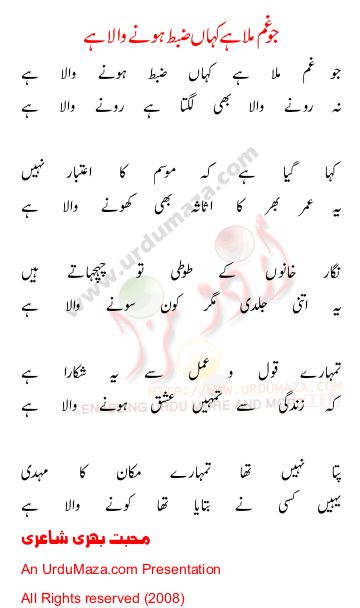 جو غم ملا ہے کہاں ضبط ہونے والا ہے
جو غم ملا ہے کہاں ضبط ہونے والا ہے
نہ رونے والا بھی لگتا ہے رونے والا ہے
کہا گیا ہے کہ موسم کا اعتبار نہیں
یہ عمر بھر کا اثاثہ بھی کھونے والا ہے
نگار خانوں کے طوطی تو چہچہاتے ہیں
یہ اتنی جلدی مگر کون سونے والا ہے
تمہارے قول و عمل سے یہ شکارا ہے
کہ زندگی سے تمہیں عشق ہونے والا ہے
پتا نہیں تھا تمہارے مکان کا مہدی
یہیں کسی نے بتایا تھا کونے والا ہے
محبت بھری شاعری
An UrduMaza.com Presentation
All Rights reserved (2008)
www.urdumaza.com
HTTP://WWW.URDUMAZA.COM